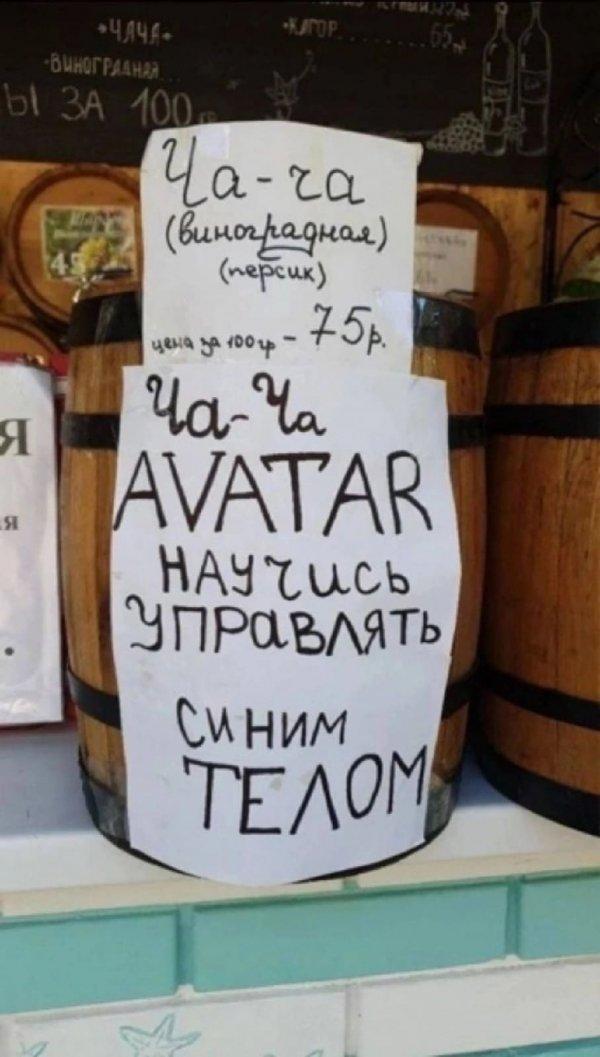 •ЧАЧА•
•КАГОР
65
•ВИНОГРАДНАЯ
Ы ЗА 100
Ча-ча
(виноградная)
(персик)
цена за 100гр - 75р.
Ча-Ча
AVATAR
НАУЧИСЬ
УПРАВЛЯТЬ
СИНИМ
ТЕЛОМ
Я
я